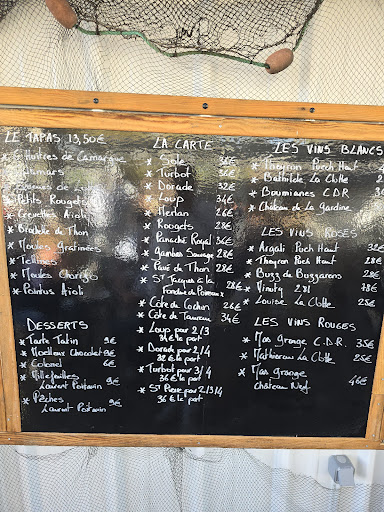 LE TAPAS 13,50€
* 6 Huîtres de Camargue
* Calamars
* Petits Rougets
* Crevettes Aïoli
* Brochette de Thon
* Moules Gratinées
* Tellines
* Moules Chorizo
* Poulpes Aïoli
DESSERTS
* Tarte Tatin 9€
* Moelleux Chocolat 9€
* Colonel 6€
* Millefeuilles 9€
Laurent Poitevin
* Pêches 9€
Laurent Poitevin
LA CARTE
* Sole 36€
* Turbot 36€
* Dorade 32€
* Loup 34€
* Merlan 26€
* Rougets 28€
* Panaché Royal 36€
* Gambas Sauvage 28€
* Pavé de Thon 28€
* St Jacques à la 28€
Fondue de Poireaux
* Côte de Cochon 26€
* Côte de Taureau 34€
* Loup pour 2/3
34€ le part
* Dorade pour 2/4
32€ le part
* Turbot pour 3/4
36€ le part
* St Pierre pour 2/3/4
36€ le part
LES VINS BLANCS
* Theyron Poch Haut
* Bathilde La Clotte
* Boumianes C.D.R.
* Château de La Gardine
LES VINS ROSÉS
* Argali Poch Haut 32€
* Theyron Poch Haut 28€
* Buzz de Buzzarens
* La Clotte 25€
LES VINS ROUGES
* Mas Grange C.D.R. 35€
* La Clotte 25€
* Mas Grange 46€
Château Neuf